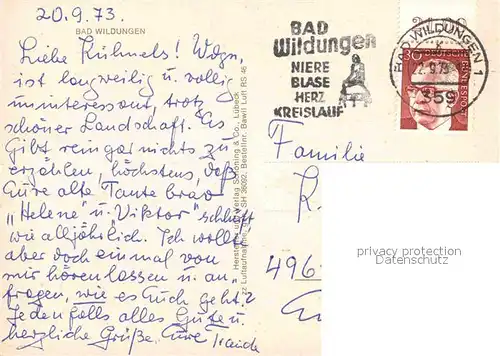 20.9.73.
BAD WILDUNGEN
Liebe Kühnels! Wdgn.
ist langweilig u. völlig
uninteressant, trotz
schöner Landschaft. Es
gibt rein gar nichts zu
erzählen, höchstens, daß
Eure alte Tante brav
„Helene" u. Viktor" schluckt
wie alljährlich. Ich wollte
aber doch einmal von
mir hören lassen u. an-
fragen, wie es Euch geht?
Jedenfalls alles Gute u.
herzliche Grüße, Eure
Herstellung und Verlag Schöning & Co., Lübeck
Luftaufnahme SH 36092, Bestellnr. Bawil Luft RS 46
BAD
Wildungen
NIERE
BLASE
HERZ
KREISLAUF
BAD WILDUNGEN 1
359
DEUTSCHE BUNDESPOST
Familie
K.
496
privacy protection
Datenschutz